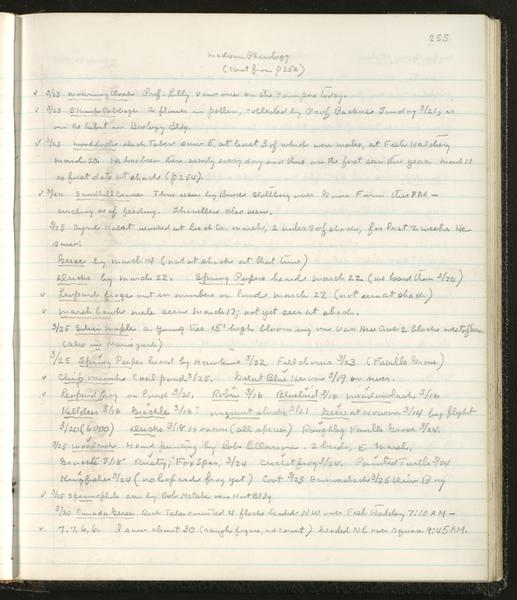 255
Madison Phenology
(Cont from p252)
✓ 3/23 Mourning Cloak Prof. Lilly saw one on the campus today.
✓ 3/23 Skunk Cabbage a flower in pollen, collected by Prof Backus Sunday 3/21, is
on exhibit in Biology Bldg.
✓ 3/23 Woodducks Dick Taber saw 5, at least 3 of which were males, at Fish Hatchery
March 20. He has been there nearly every day and these are the first seen this year. March 21
is first date at shack (p254).
✓ 3/24 Sandhill Crane Three seen by Bruce Stollberg over Farm 4 PM –
circling as if feeding. Shovellers also seen.
3/25 worked at marsh, 2 miles S of shack, for last 2 weeks. He
saw:
Geese by March 14 (not at shack at that time)
Ducks by March 22. Spring Peepers heard March 22 (we heard them 3/20)
✓ Leopard frogs out in numbers on land March 22 (not seen at shack)
✓ Marsh hawk male seen March 17; not yet seen at shack.
3/25 Silver Maple a young tree 15' high blooming on Van Hise Ave 2 blocks west of
(also in Moms yard)
3/25 Spring Peeper heard by Hawkins 3/22 Full chorus 3/23 (Faville Grove)
✓ Chipmunk Coal pond 3/25. Great Blue Heron 3/19 on river.
✓ Leopard frog on land 3/21. Robin 3/16 Bluebird 3/18 Meadowlark 3/16
Killdeer 3/16 Grackle 3/16 migrant shrike 3/21 Geese at Horicon 3/14 big flight
3/20 (6000) Ducks 3/18 Horicon (all species) Roughleg Faville Grove 3/24.
3/25 Woodcock Heard peenting by Bob Ellarson. 2 birds, E. Marsh.
Grackle 3/18 Rusty, Fox Spar, 3/24 Cricket frog 3/24. Painted Turtle 3/24
Kingfisher 3/24 (no leopard frog yet) Coot 3/25
✓ 3/25 Spermophile seen by Bob McCabe near Hort Bldg
3/30 Canada Geese Dick Taber counted 4 flocks headed NW over Fish Hatchery 7:10 AM –
✓ 7, 7, 6, 6. I saw about 30 (rough figure, no count) headed NE over square 9:45 AM.